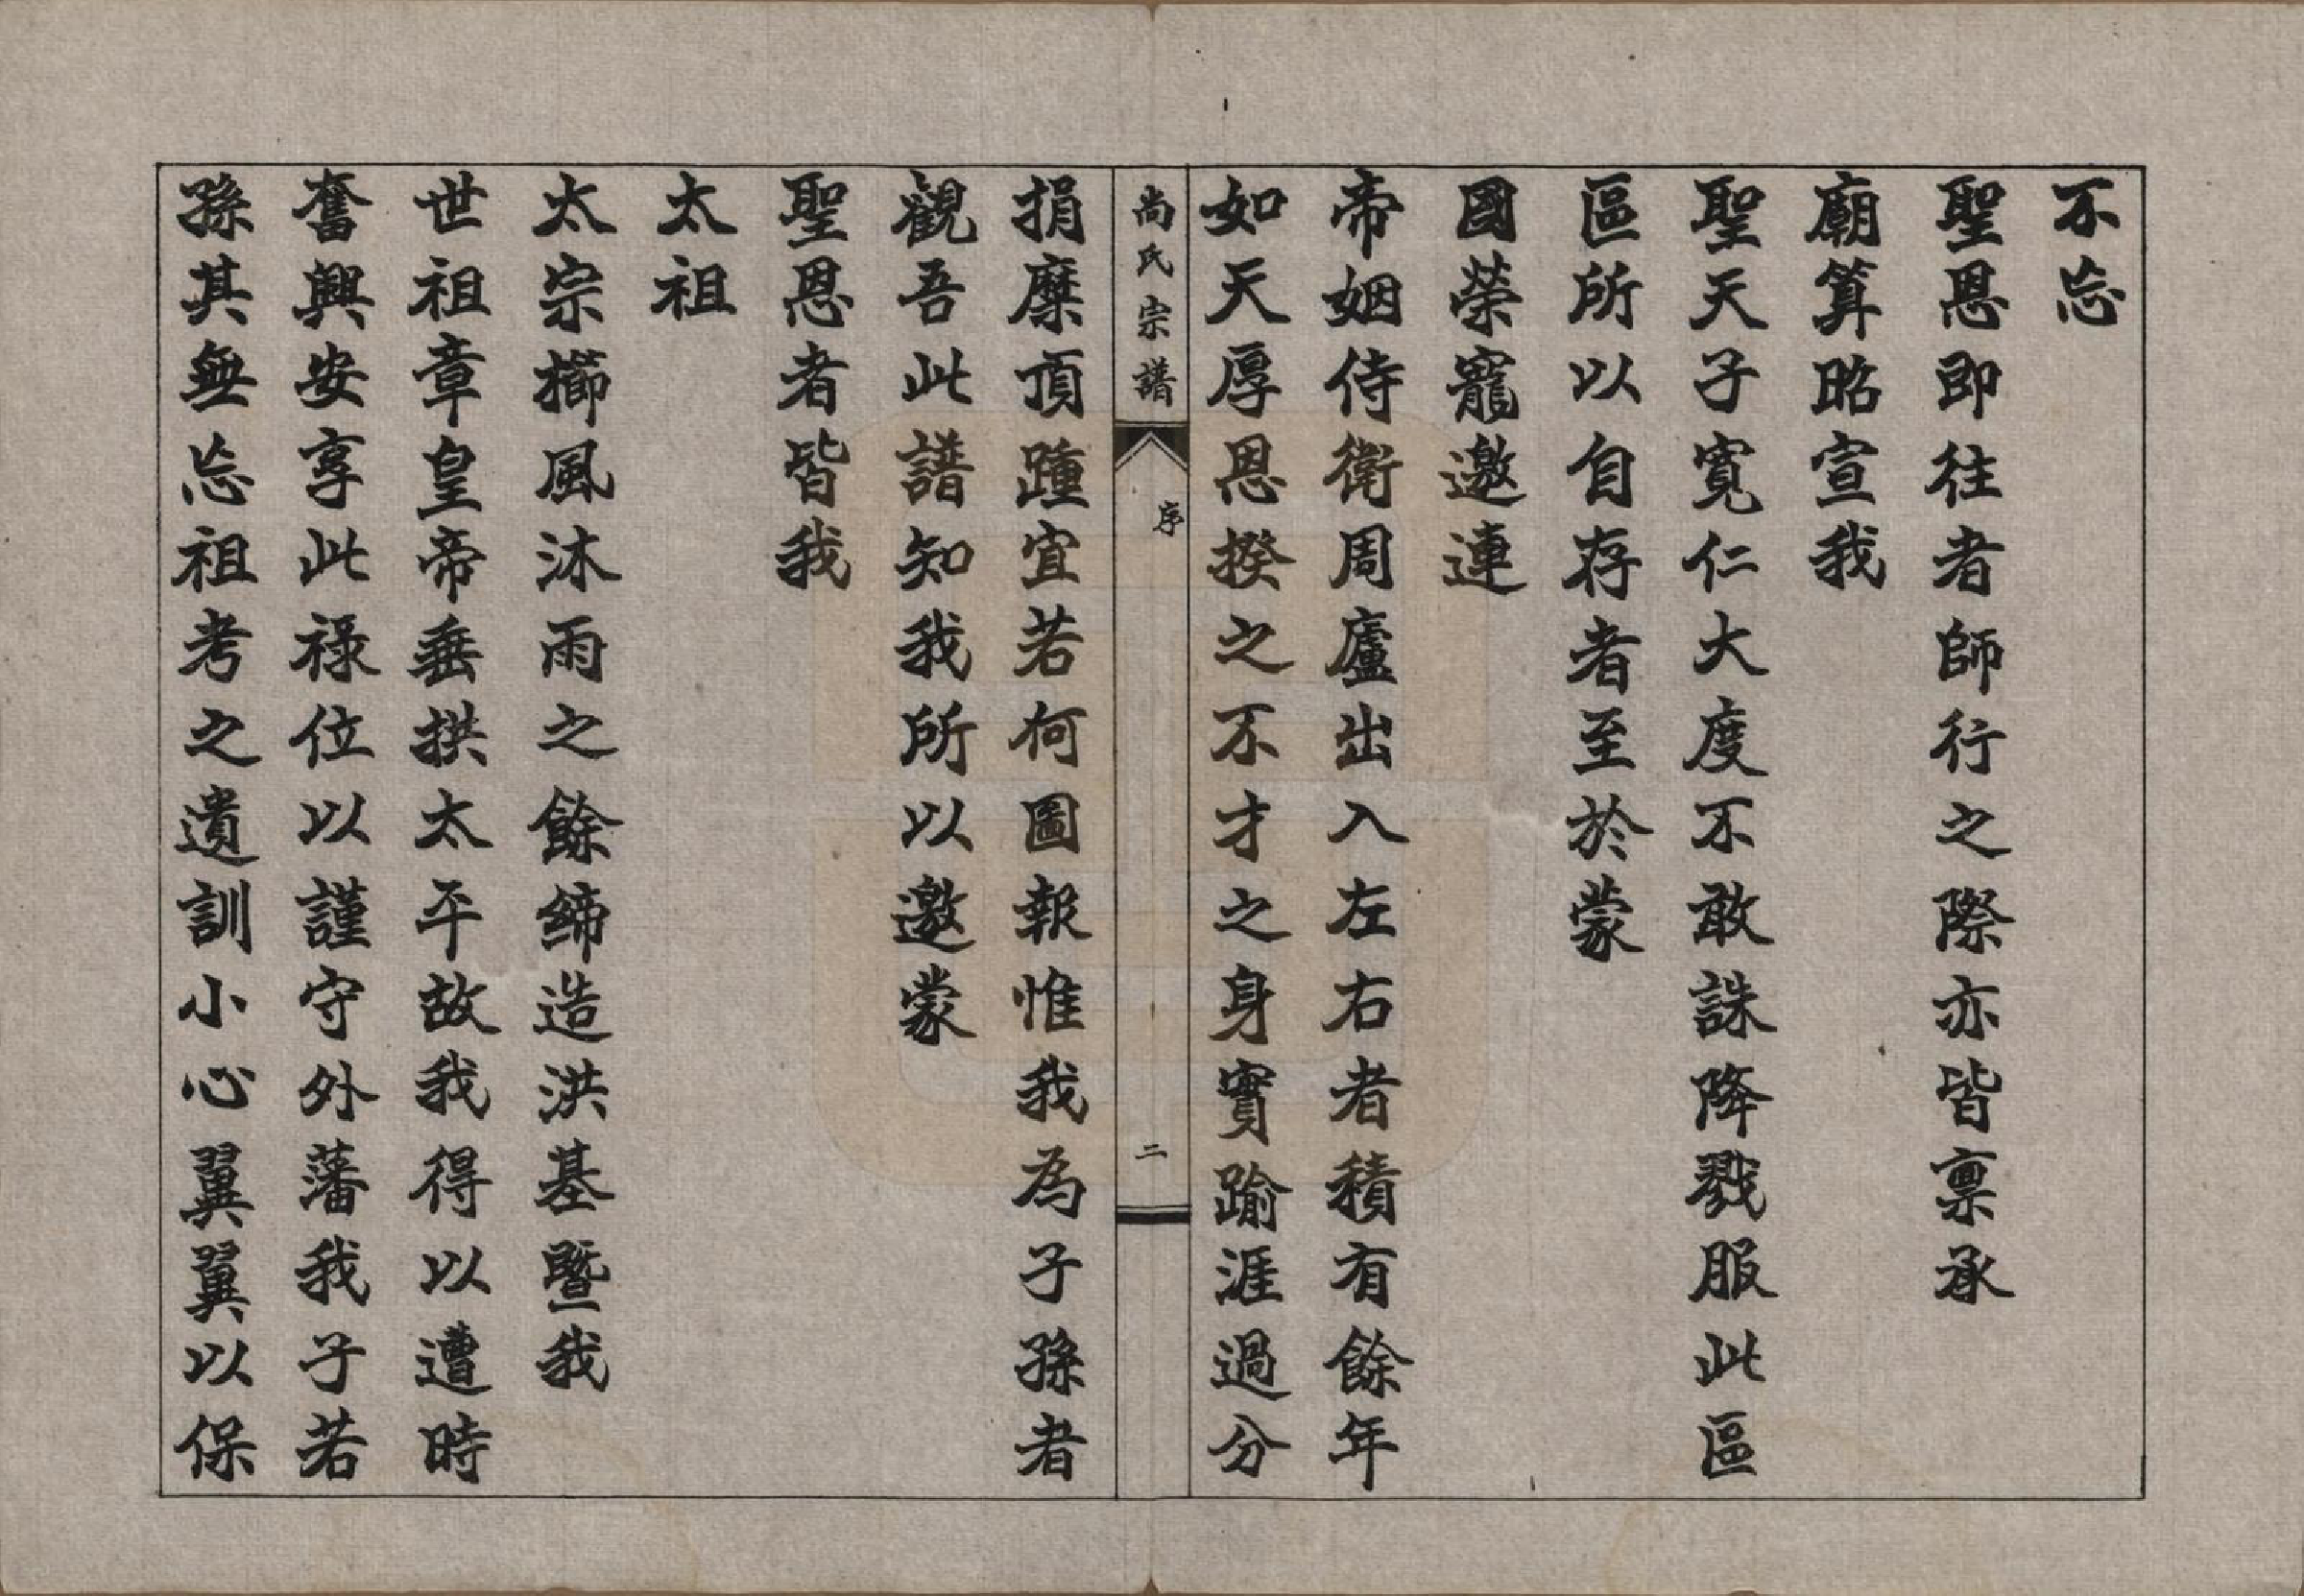 不忘
聖恩即往者師行之際亦皆禀承
廟算昭宣我
聖天子寬仁大度不敢誅降戮服此區
區所以自存者至於蒙
國榮寵邀連
帝姻侍衛周廬出入左右者積有餘年
如天厚恩揆之不才之身實踰涯過分
尚氏宗譜
序
二
捐糜頂踵宜若何圖報惟我為子孫者
觀吾此譜知我所以邀蒙
聖恩者皆我
太祖
太宗櫛風沐雨之餘締造洪基暨我
世祖章皇帝垂拱太平故我得以遭時
奮興安享此禄位以謹守外藩我子若
孫其無忘祖考之遺訓小心翼翼以保